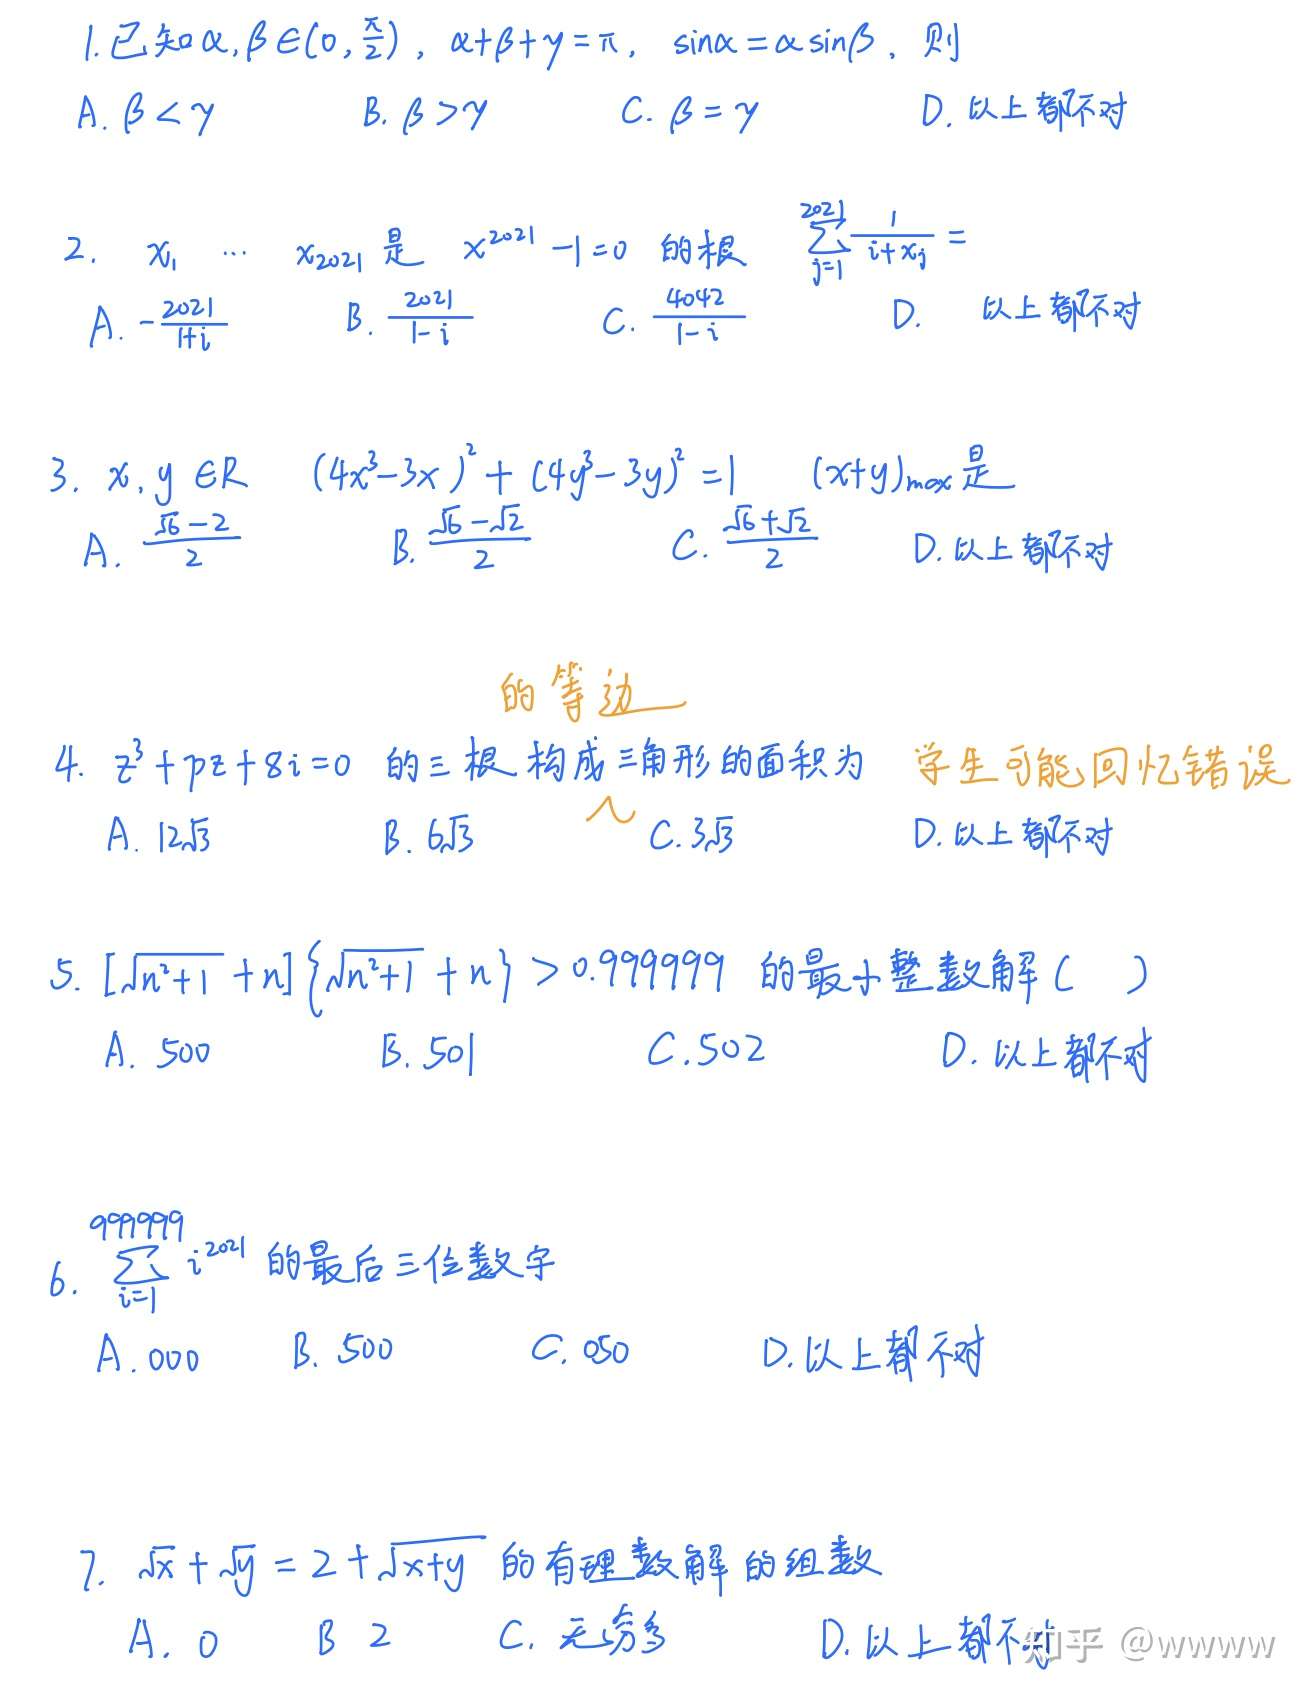 1. 已知 α, β ∈ (0, π/2), α+β+γ=π, sinα=αsinβ, 则
A. β<γ B. β>γ C. β=γ D. 以上都不对
2. x₁ … x₂₀₂₁ 是 x²⁰²¹-1=0 的根 ∑_{j=1}^{2021} 1/(i+x_j) =
A. -2021/(1+i) B. 2021/(1-i) C. 4042/(1-i) D. 以上都不对
3. x, y ∈R (4x³-3x)²+(4y³-3y)²=1 (x+y)max 是
A. (√6-2)/2 B. (√6-√2)/2 C. (√6+√2)/2 D. 以上都不对
的等边
4. z³+pz+8i=0 的三根构成三角形的面积为 学生可能回忆错误
A. 12√3 B. 6√3 C. 3√3 D. 以上都不对
5. [√(n²+1)+n]{√(n²+1)+n}>0.999999 的最小整数解( )
A. 500 B. 501 C. 502 D. 以上都不对
6. ∑_{i=1}^{999999} i²⁰²¹ 的最后三位数字
A. 000 B. 500 C. 050 D. 以上都不对
7. √x+√y=2+√(x+y) 的有理数解的组数
A. 0 B 2 C. 无穷多 D. 以上都不对
知乎 @wwww